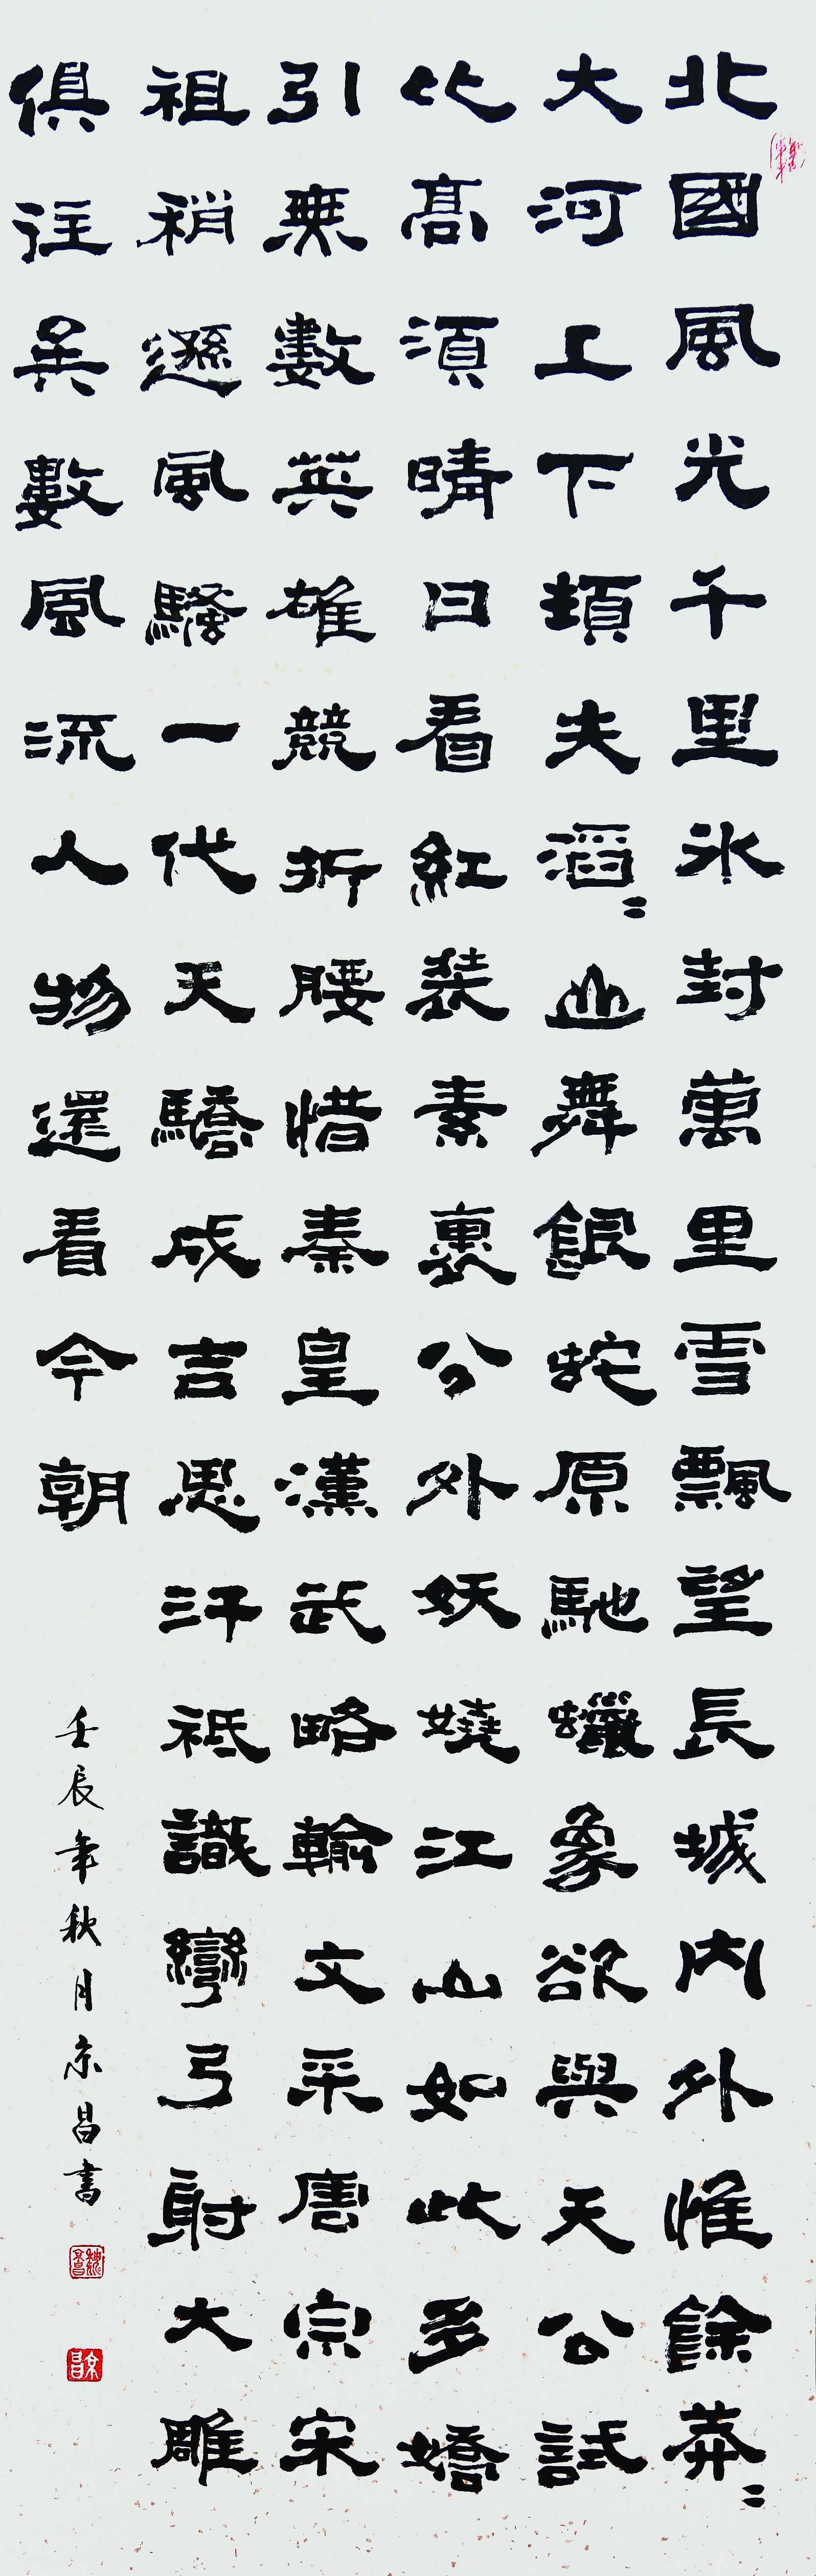 北國風光千里冰封萬里雪飄望長城内外惟餘莽〻
大河上下頓失滔〻山舞銀蛇原馳蠟象欲與天公試
比高須晴日看紅裝素裹分外妖嬈江山如此多嬌
引無數英雄競折腰惜秦皇漢武略輸文采唐宗宋
祖稍遜風騷一代天驕成吉思汗祗識彎弓射大雕
俱往矣數風流人物還看今朝
壬辰年秋月京昌書
魏京昌
京昌